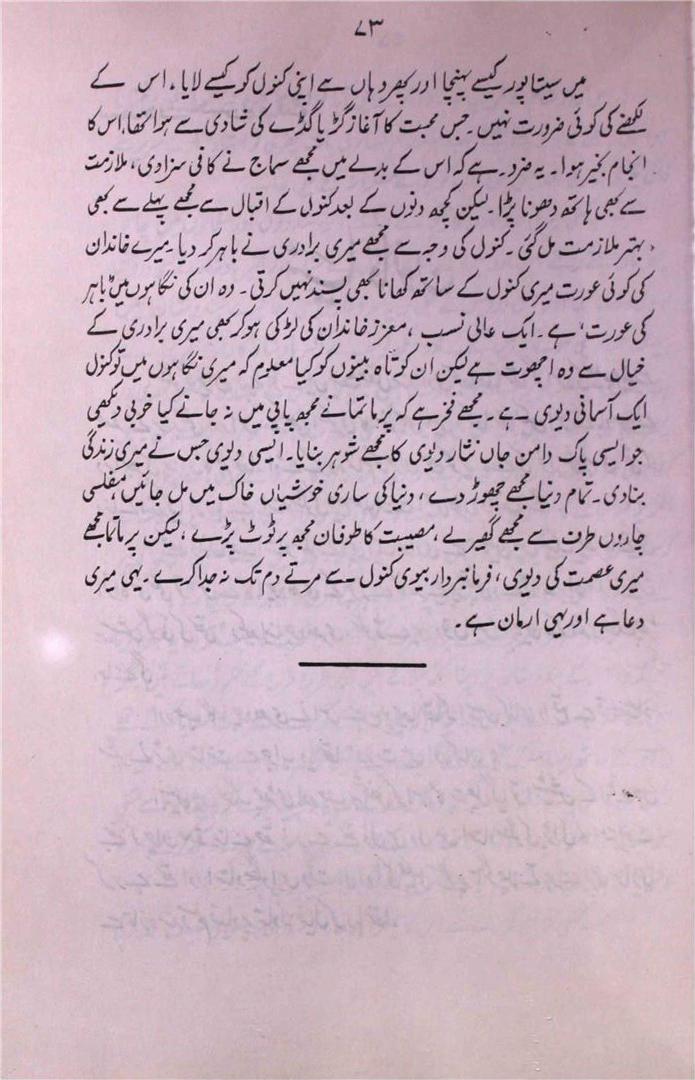 ۷۳
میں سیتاپور کیسے پہنچا اور پھر وہاں سے اپنی کنول کو کیسے لایا، اس کے
لکھنے کی کوئی ضرورت نہیں۔ جس محبت کا آغاز گڑیا گڈے کی شادی سے ہوا تھا، اس کا
انجام بخیر ہوا۔ یہ ضرور ہے کہ اس کے بدلے میں مجھے سماج نے کافی سزا دی، ملازمت
سے بھی ہاتھ دھونا پڑا۔ لیکن کچھ دنوں کے بعد کنول کے اقبال سے مجھے پہلے سے بھی
بہتر ملازمت مل گئی۔ کنول کی وجہ سے مجھے میری برادری نے باہر کر دیا۔ میرے خاندان
کی کوئی عورت میری کنول کے ساتھ کھانا بھی پسند نہیں کرتی۔ وہ ان کی نگاہوں میں 'باہر
کی عورت' ہے۔ ایک عالی نسب، معزز خاندان کی لڑکی ہو کر بھی میری برادری کے
خیال سے وہ اچھوت ہے لیکن ان کوتاہ بینوں کو کیا معلوم کہ میری نگاہوں میں تو کنول
ایک آسمانی دیوی ہے۔ مجھے فخر ہے کہ پرماتما نے مجھ پاپی میں نہ جانے کیا خوبی دیکھی
جو ایسی پاک دامن جاں نثار دیوی کا مجھے شوہر بنایا۔ ایسی دیوی جس نے میری زندگی
بنا دی۔ تمام دنیا مجھے چھوڑ دے، دنیا کی ساری خوشیاں خاک میں مل جائیں، مفلسی
چاروں طرف سے مجھے گھیر لے، مصیبت کا طوفان مجھ پر ٹوٹ پڑے، لیکن پرماتما مجھے
میری عصمت کی دیوی، فرمانبردار بیوی کنول سے مرتے دم تک نہ جدا کرے۔ یہی میری
دعا ہے اور یہی ارمان ہے۔